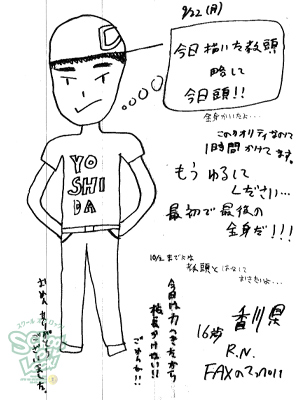 9/22(月)
今日描いた教頭
略して
今日頭!!
全身かいたよ…
このクオリティなのに
1時間かけてます。
もう ゆるして
ください…
最初で最後の
全身だ!!!
YO
SHI
DA
10/2までには
教頭とはなして
おきたいよ…
今日は力つきたから
校長かけない!!
ごめんな!!
香川県
16歳
R.N.
FAXの